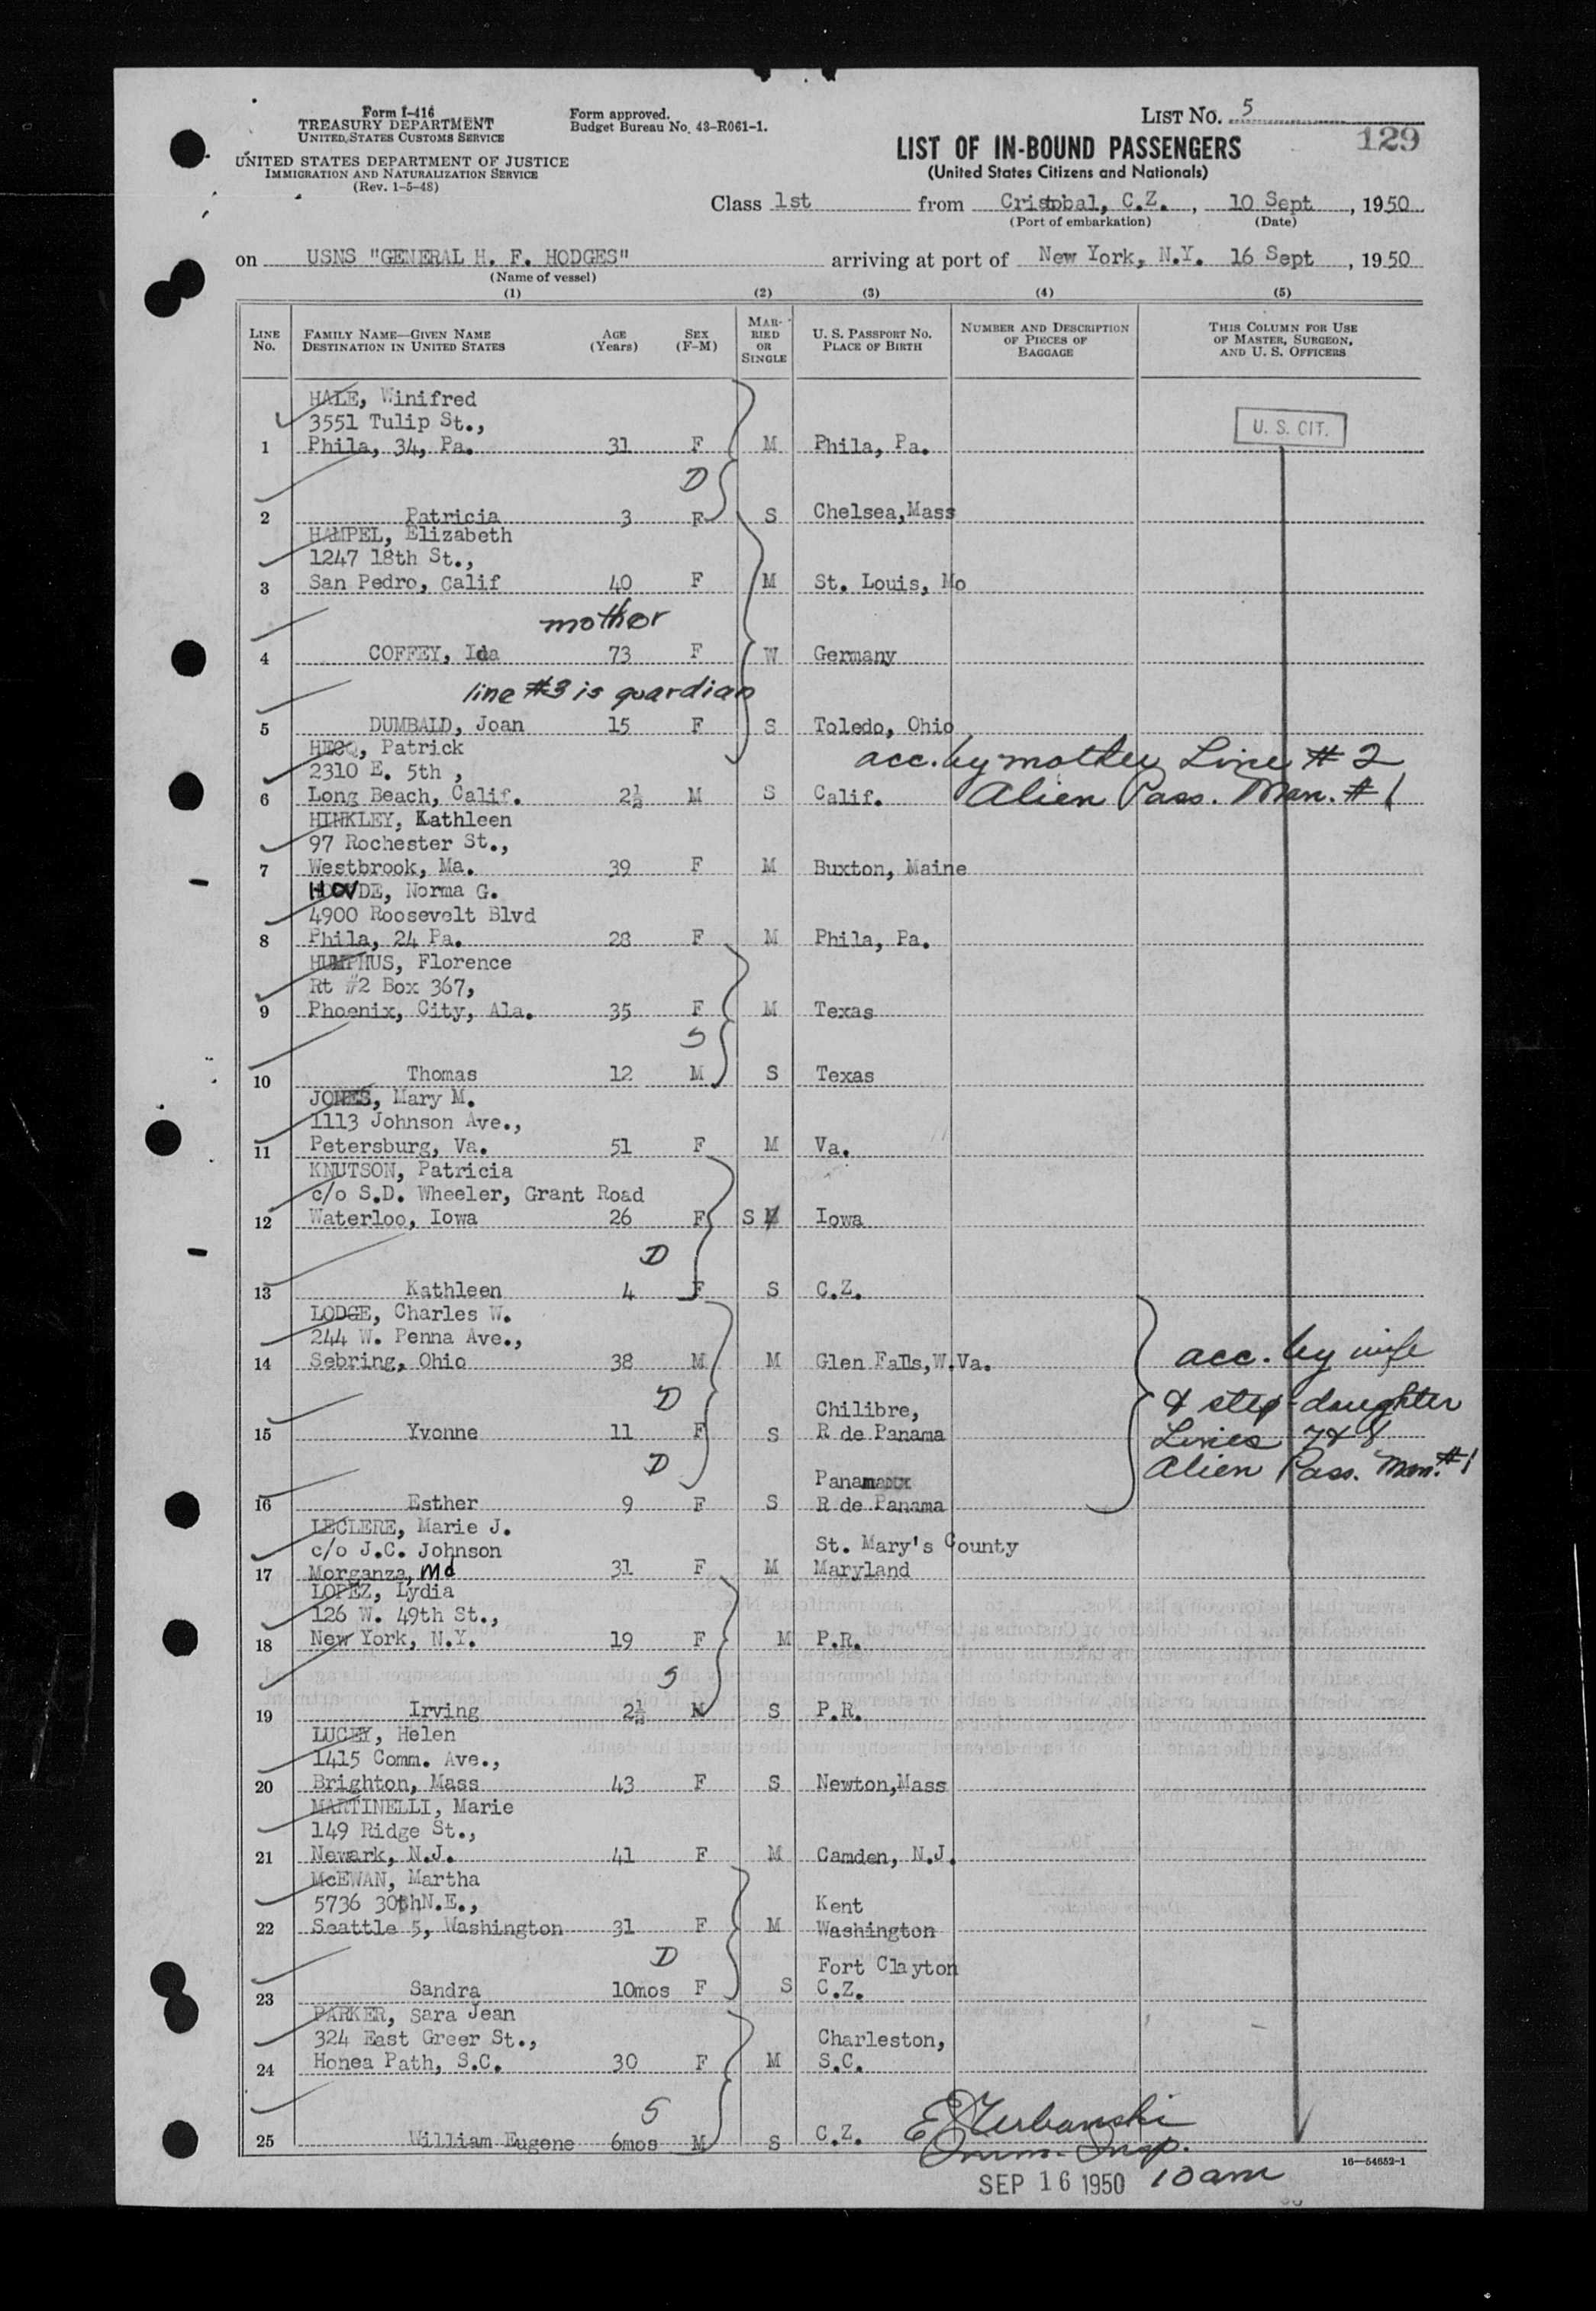 Form I-416
TREASURY DEPARTMENT
UNITED STATES CUSTOMS SERVICE
UNITED STATES DEPARTMENT OF JUSTICE
IMMIGRATION AND NATURALIZATION SERVICE
(Rev. 1-5-48)
Form approved.
Budget Bureau No. 43-R061-1.
LIST NO. 5
129
LIST OF IN-BOUND PASSENGERS
(United States Citizens and Nationals)
Class 1st from Cristobal, C.Z., 10 Sept, 1950
(Port of embarkation) (Date)
on USNS "GENERAL H. F. HODGES" arriving at port of New York, N.Y. 16 Sept, 1950
(Name of vessel)
(1) (2) (3) (4) (5)
LINE No. FAMILY NAME—GIVEN NAME DESTINATION IN UNITED STATES AGE (Years) SEX (F-M) MARRIED OR SINGLE U. S. PASSPORT NO. PLACE OF BIRTH NUMBER AND DESCRIPTION OF PIECES OF BAGGAGE THIS COLUMN FOR USE OF MASTER, SURGEON, AND U. S. OFFICERS
HALE, Winifred
3551 Tulip St.,
U. S. CIT.
1 Phila, 34, Pa. 31 F M Phila, Pa.
D
2 Patricia 3 F S Chelsea,Mass
HAMPEL, Elizabeth
1247 18th St.,
3 San Pedro, Calif 40 F M St. Louis, Mo
mother
4 COFFEY, Ida 73 F W Germany
line #3 is guardian
5 DUMBALD, Joan 15 F S Toledo, Ohio
HECQ, Patrick
2310 E. 5th ,
acc. by mother Line # 2
6 Long Beach, Calif. 2½ M S Calif. Alien Pass. Man. # 1
HINKLEY, Kathleen
97 Rochester St.,
7 Westbrook, Ma. 39 F M Buxton, Maine
HOVDE, Norma G.
4900 Roosevelt Blvd
8 Phila, 24 Pa. 28 F M Phila, Pa.
HUMPHUS, Florence
Rt #2 Box 367,
9 Phoenix, City, Ala. 35 F M Texas
S
10 Thomas 12 M S Texas
JONES, Mary M.
1113 Johnson Ave.,
11 Petersburg, Va. 51 F M Va.
KNUTSON, Patricia
c/o S.D. Wheeler, Grant Road
12 Waterloo, Iowa 26 F S Iowa
D
13 Kathleen 4 F S C.Z.
LODGE, Charles W.
244 W. Penna Ave.,
14 Sebring, Ohio 38 M M Glen Falls,W.Va. acc. by wife
D Chilibre, & step-daughter
15 Yvonne 11 F S R de Panama Lines 7 & 8
D Panama Alien Pass. Man. #1
16 Esther 9 F S R de Panama
LECLERE, Marie J.
c/o J.C. Johnson St. Mary's County
17 Morganza, Md 31 F M Maryland
LOPEZ, Lydia
126 W. 49th St.,
18 New York, N.Y. 19 F M P.R.
S
19 Irving 2½ M S P.R.
LUCEY, Helen
1415 Comm. Ave.,
20 Brighton, Mass 43 F S Newton,Mass
MARTINELLI, Marie
149 Ridge St.,
21 Newark, N.J. 41 F M Camden, N.J.
McEWAN, Martha
5736 30thN.E., Kent
22 Seattle 5, Washington 31 F M Washington
D Fort Clayton
23 Sandra 10mos F S C.Z.
PARKER, Sara Jean
324 East Greer St., Charleston,
24 Honea Path, S.C. 30 F M S.C.
S
25 William Eugene 6mos M S C.Z.
E Urbanski
Imm. Insp.
16—54652-1
SEP 16 1950 10 am